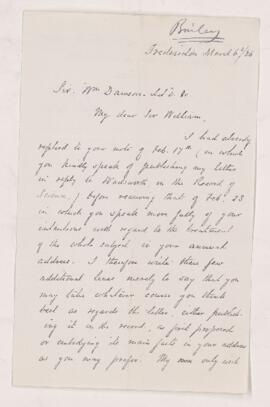 Bailey
Fredericton March 6th/86
Sir. Wm Dawson. LL.D. &c
My dear Sir William,
I had already
replied to your note of Feb. 17th (in which
you kindly speak of publishing my letter
in reply to Wadsworth in the Record of
Science,) before receiving that of Feb. 23
in which you speak more fully of your
intentions with regard to the treatment
of the whole subject in your annual
address. I therefore write these few
additional lines merely to say that you
may take whatever course you think
best as regards the letter, either publish-
ing it in the record, as first proposed
or embodying its main facts in your address
as you may prefer. My own only wish